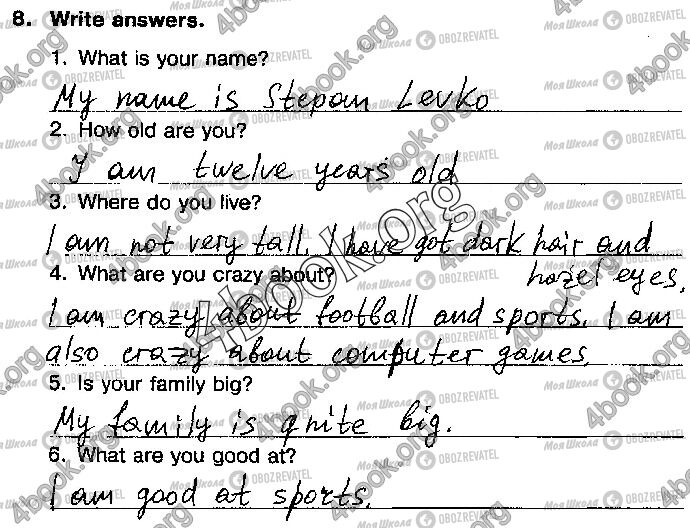 8. Write answers.
1. What is your name?
My name is Stepan Levko
2. How old are you?
I am twelve years old
3. Where do you live?
I am not very tall. I have got dark hair and
hazel eyes.
4. What are you crazy about?
I am crazy about football and sports. I am
also crazy about computer games.
5. Is your family big?
My family is qnite big.
6. What are you good at?
I am good at sports.
4book.org
Моя Школа OBOZREVATEL